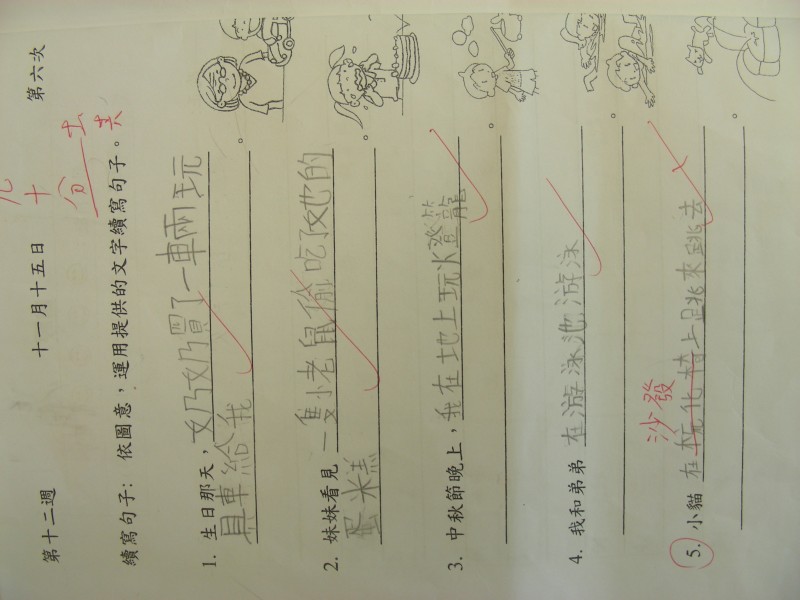 第十二週　十一月十五日　第六次
九十分
續寫句子：依圖意，運用提供的文字續寫句子。
1. 生日那天，奶奶買了一車兩玩
具車給我。
2. 妹妹看見一隻小老鼠偷吃了她的
蛋糕。
3. 中秋節晚上，我在地上玩火燈籠
。
4. 我和弟弟在游泳池游泳
。
沙發
5. 小貓在椅上跳來跳去
。